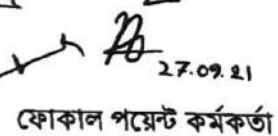 27.09.21
ফোকাল পয়েন্ট কর্মকর্তা